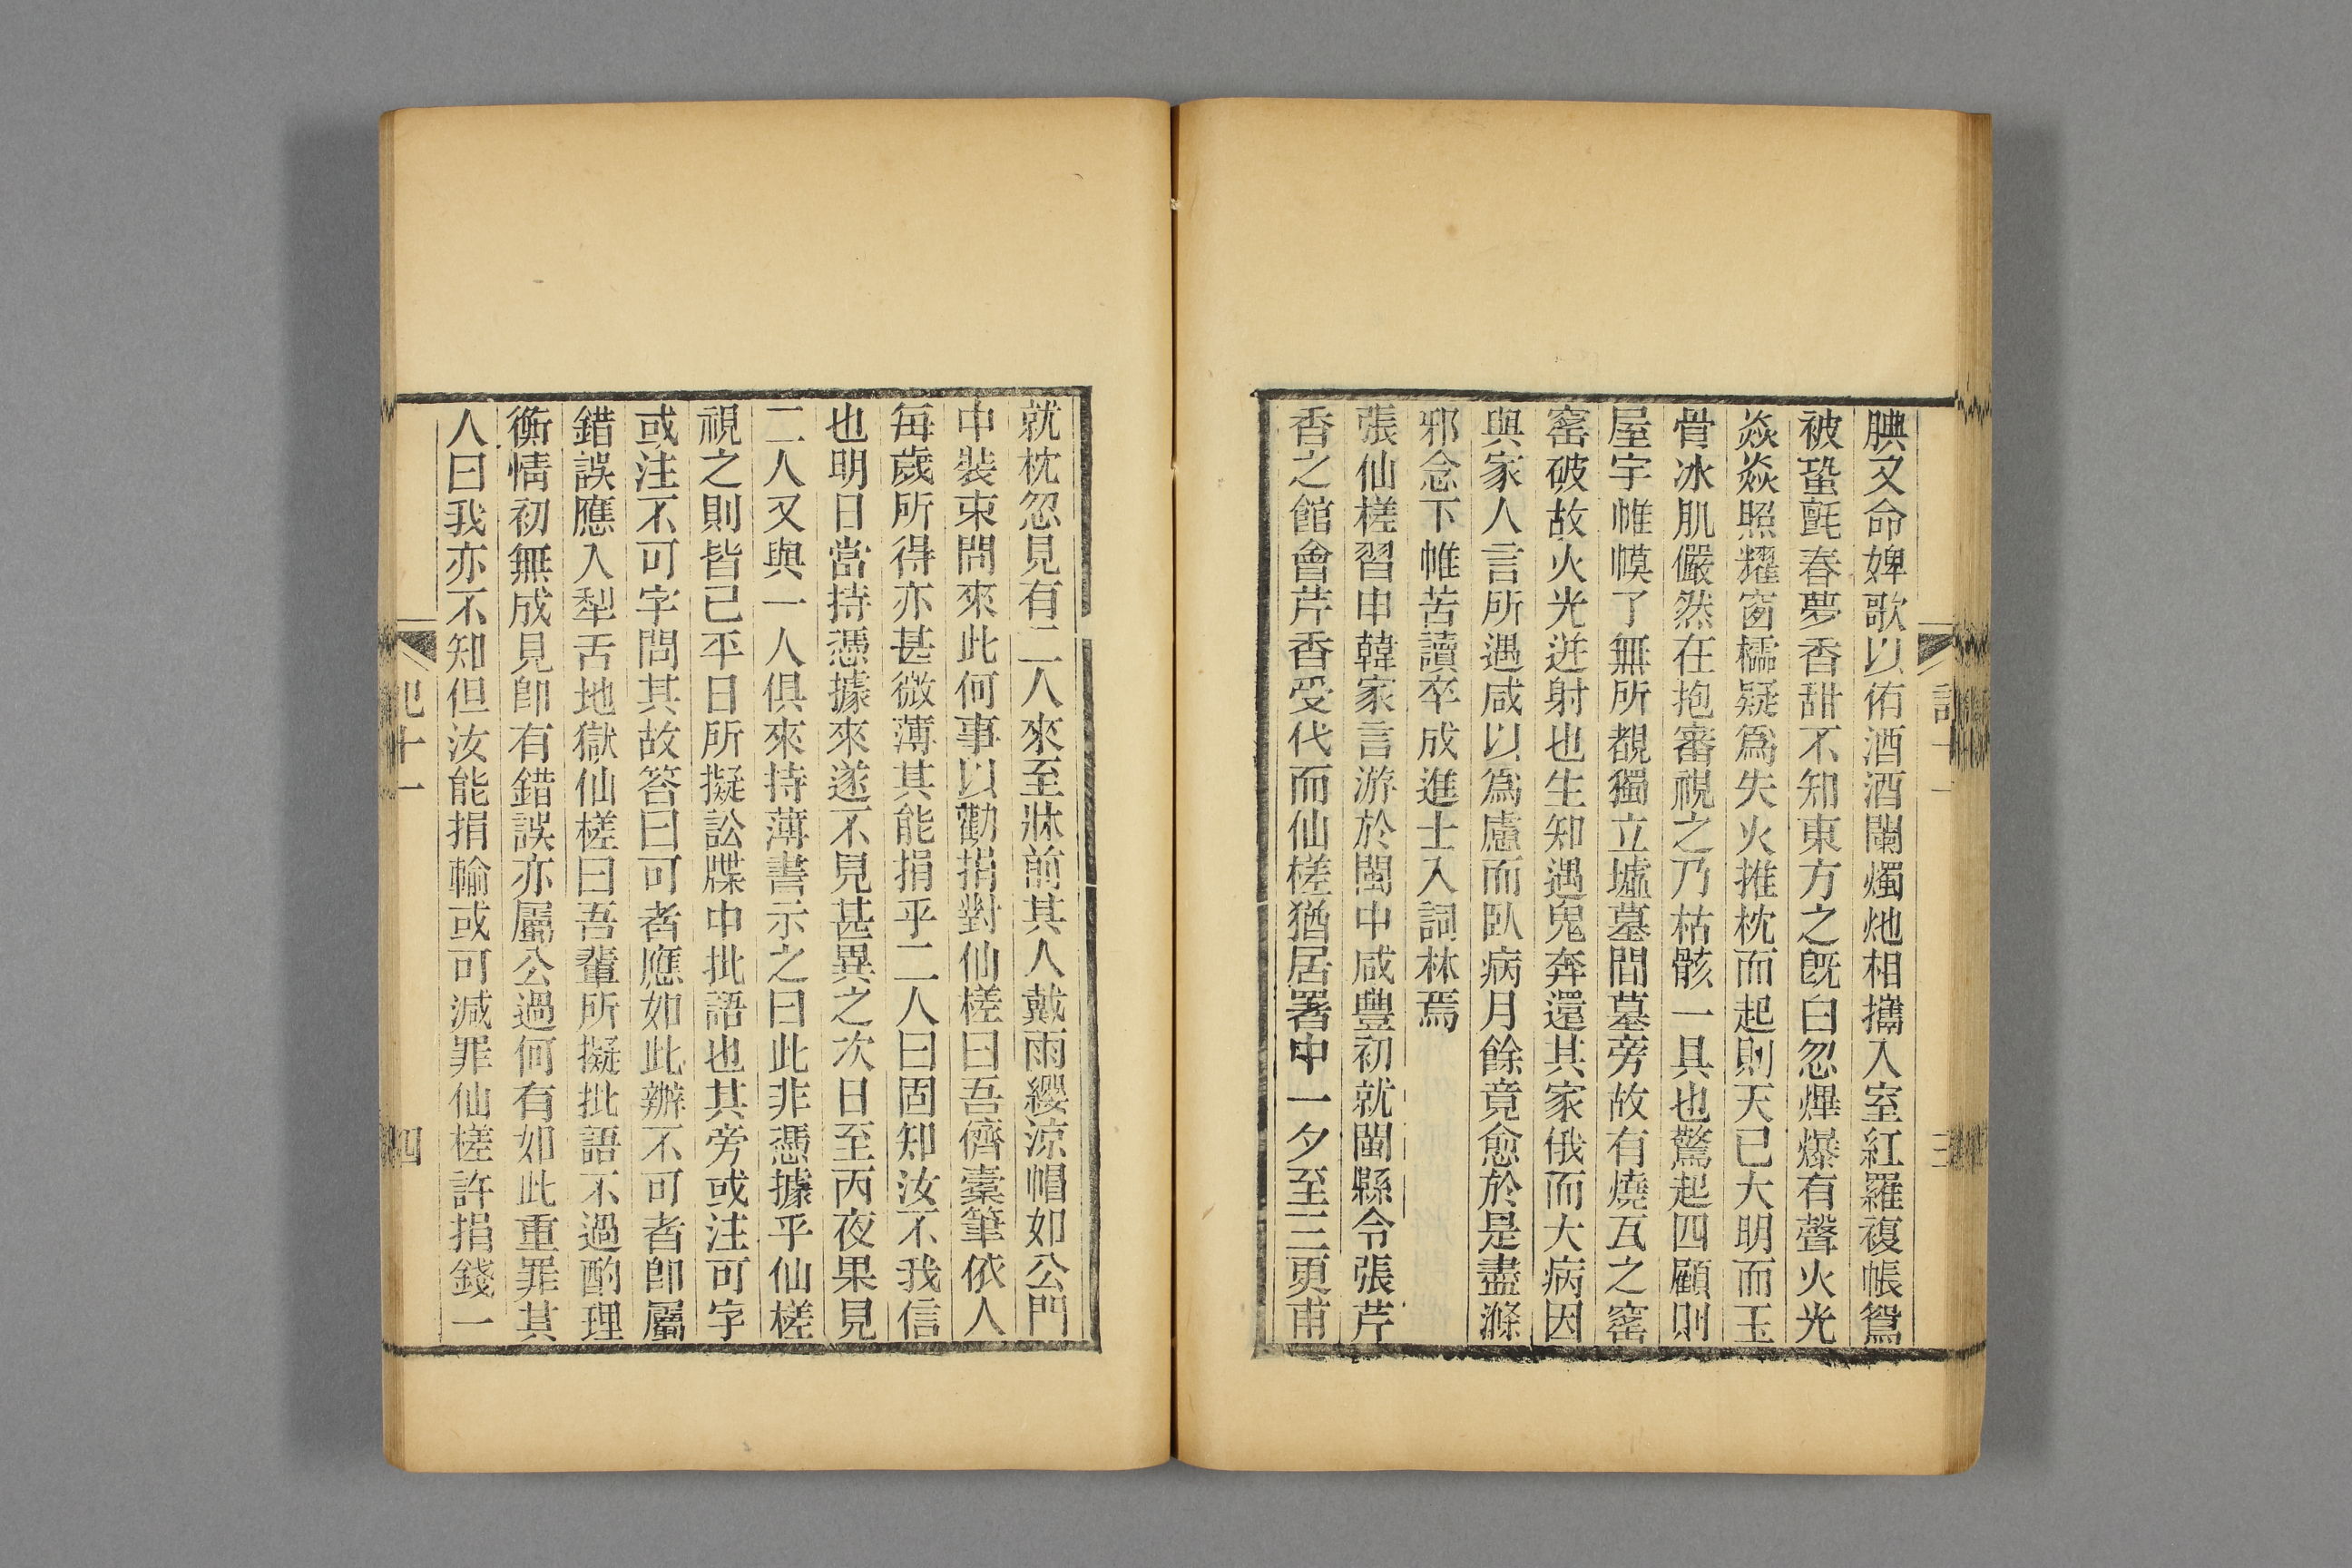 腆又命婢歌以侑酒酒闌燭灺相攜入室紅羅複帳鴛
被蛩氈春夢香甜不知東方之旣白忽熚爆有聲火光
焱焱照耀窗櫺疑爲失火推枕而起則天已大明而玉
骨冰肌儼然在抱審視之乃枯骸一具也驚起四顧則
屋宇帷幙了無所覩獨立墟墓間墓旁故有燒瓦之窰
窰破故火光迸射也生知遇鬼奔還其家俄而大病因
與家人言所遇咸以爲慮而臥病月餘竟愈於是盡滌
邪念下帷苦讀卒成進士入詞林焉
張仙槎習申韓家言游於閩中咸豐初就閩縣令張芹
香之館會芹香受代而仙槎猶居署中一夕至三更甫
三
就枕忽見有二人來至牀前其人戴雨纓涼帽如公門
中裝束問來此何事以勸捐對仙槎曰吾儕橐筆依人
每歲所得亦甚微薄其能捐乎二人曰固知汝不我信
也明日當持憑據來遂不見甚異之次日至丙夜果見
二人又與一人俱來持薄書示之曰此非憑據乎仙槎
視之則皆已平日所擬訟牒中批語也其旁或注可字
或注不可字問其故答曰可者應如此辦不可者卽屬
錯誤應入犁舌地獄仙槎曰吾輩所擬批語不過酌理
衡情初無成見卽有錯誤亦屬公過何有如此重罪其
人曰我亦不知但汝能捐輸或可減罪仙槎許捐錢一
十一
四